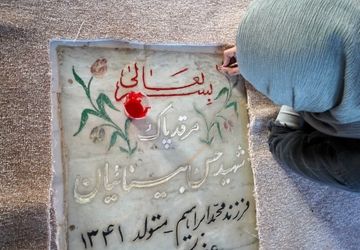 بسمه تعالی
مرقد پاک
شهید حسن بیسنائیان
فرزند محمدابراهیم - متولد ۱۳۴۱